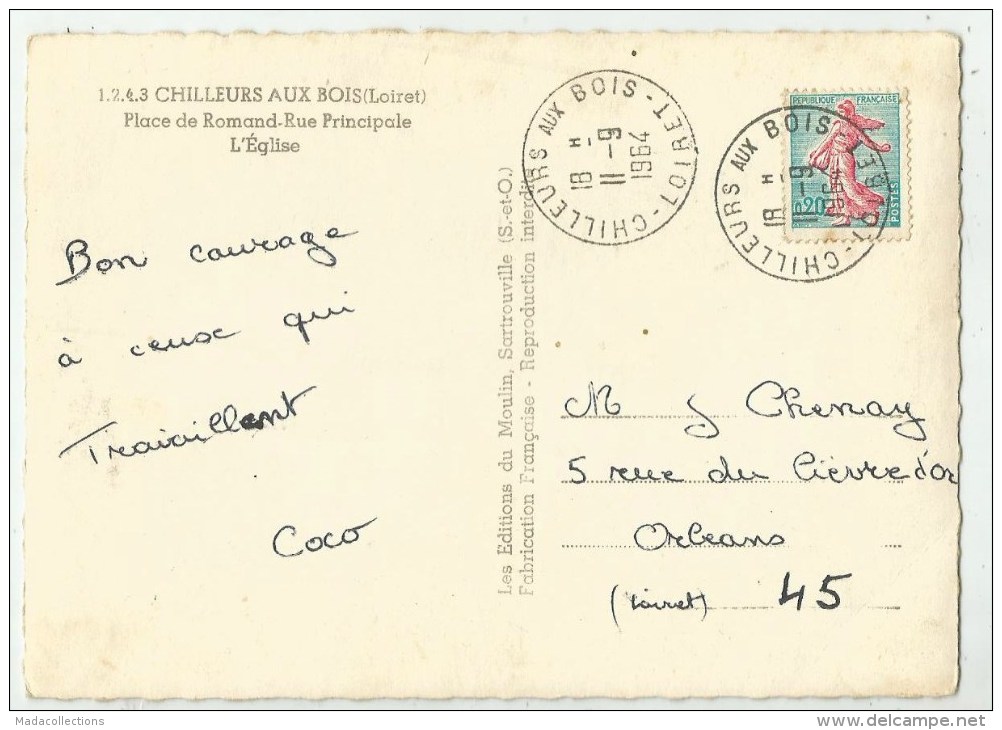 1.2.4.3 CHILLEURS AUX BOIS (Loiret)
Place de Romand-Rue Principale
L'Église
Bon courage
à ceux qui
Travaillent
Coco
Les Editions du Moulin, Sartrouville (S.-et-O.)
Fabrication Française - Reproduction interdite
CHILLEURS AUX BOIS - LOIRET -
18 H -
11 - 9
1964
REPUBLIQUE FRANÇAISE
0,20
POSTES
CHILLEURS AUX BOIS - LOIRET -
18 H -
11 - 9
1964
M J Chenay
5 rue du Lièvre d'or
Orleans
(Loiret) 45
Madacollections
www.delcampe.net